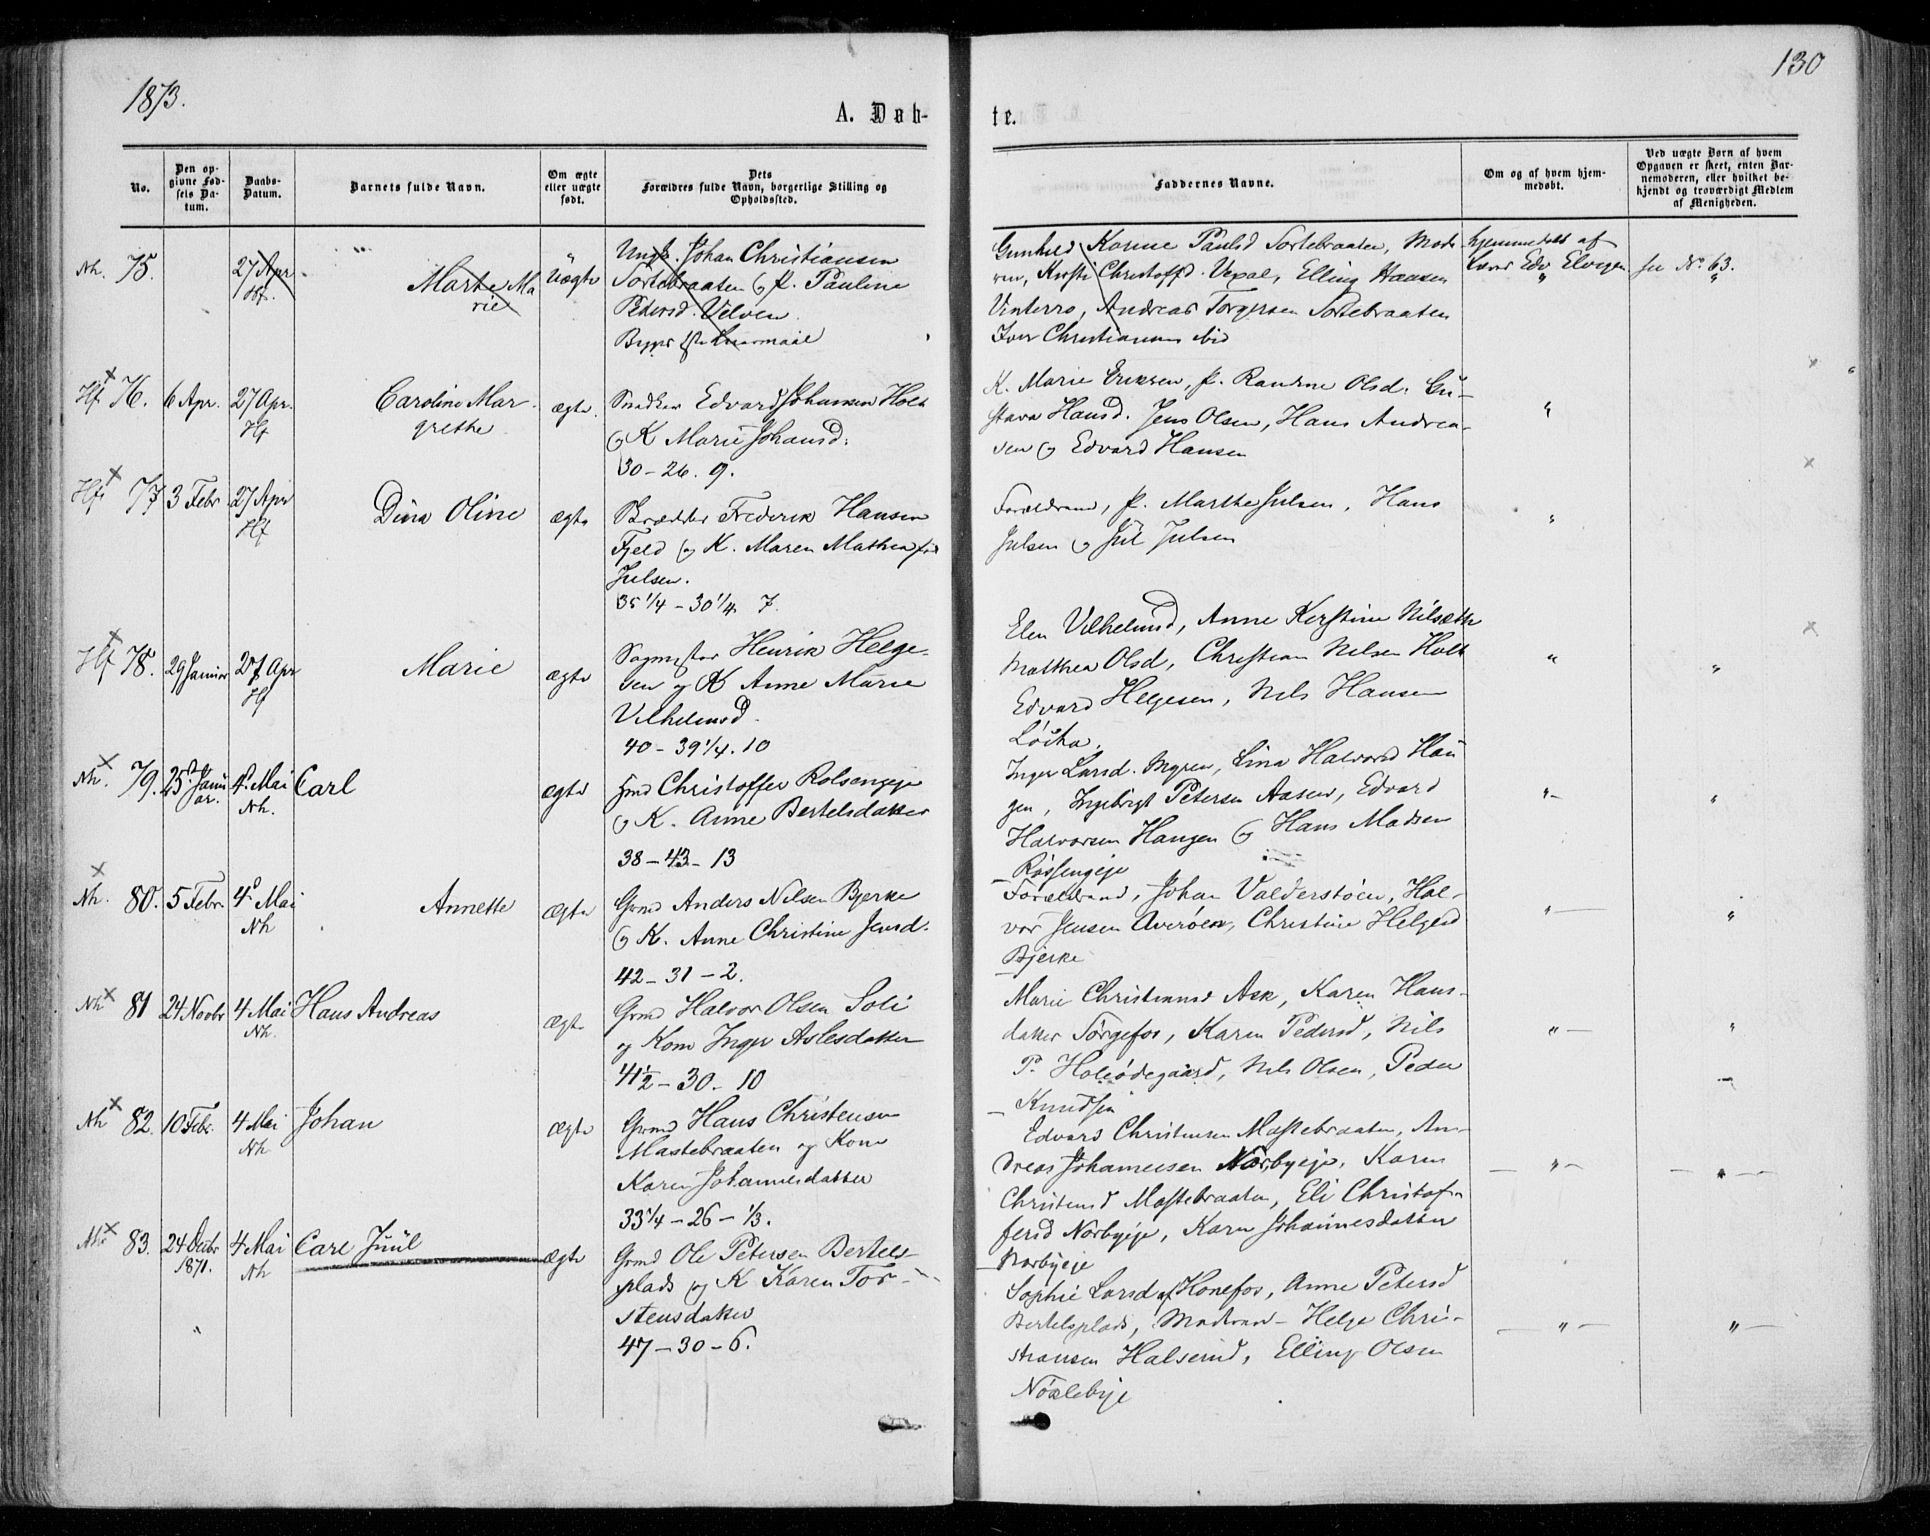 1873.
130
A. Døb-
te.
No.
Den op-
givne Fød-
sels Da-
tum.
Daabs-
Datum.
Barnets fulde Navn.
Om ægte
eller uægte
født.
Dets
Forældres fulde Navn, borgerlige Stilling og
Opholdssted.
Faddernes Navne.
Om og af hvem hjem-
medøbt.
Ved uægte Børn af hvem
Opgaven er skeet, enten Bar-
nemoderen, eller hvilket be-
kjendt og troværdigt Medlem
af Menigheden.
Nh. 75.
27 Apr
Hf.
Marthe Ma
rie
Uægte
Ungk. Johan Christiansen
Sortebraaten og P. Pauline
Pedersd. Velven.
Gunhild Karine Paulsd Sortebraaten, Mode
ren, Kirsti Christoffd. Vexal, Elling Hansen
Vinterro, Andreas Torgersen Sortebraaten
Iver Christiansen ibid
hjemmedøbt af
Lærer Edv Elvigen
se No. 63.
Hf 76.
6 Apr.
27 Apr.
Hf
Caroline Mar
grethe
ægte.
Snedker Edvard Johansen Holt
og K Marie Johansd:
30 - 26. 9.
K. Marie Eriksen, P. Randine Olsd. Gu-
stava Hansd. Jens Olsen, Hans Andrea-
sen og Edvard Hansen
Hf 77
3 Febr
27 Apr
Hf
Dina Oline
ægte
Frederik Hansen
Fjeld og K. Maren Mathea fød
Julsen.
35 1/4 - 30 1/4 7.
Forældrene, P. Marthe Julsen, Hans
Julsen og Jul Julsen
Hf 78.
29 Januar
27 Apr
Hf
Marie
ægte
Sagmester Henrik Helge-
sen og K Anne Marie
Vilhelmsd.
40 - 39 1/4. 10
Elen Vilhelmsd, Anne Kirstine Nilsdttr
Matthea Olsd, Christian Nilsen Holt
Edvard Helgesen, Nils Hansen
Løkka.
Nh. 79.
25 Janu
ar.
4 Mai
Nh.
Carl
ægte
Christoffer Rolsengeje
og K. Anne Bertelsdatter
38 - 43 - 13
Inger Larsd. Myren, Lina Halvorsd Hau
gen, Ingebrigt Petersen Aasen, Edvard
Halvorsen Haugen og Hans Madsen
Røssengeje
Nh. 80.
5 Febr.
4 Mai
Nh
Annette
ægte
Grmd Anders Nilsen Bjerke
og K. Anne Christine Jensd.
42 - 31 - 2.
Forældrene, Johan Valderstøen, Hal-
vor Jensen Averøen, Christine Helgesd
Bjerke
Nh 81
24 Novbr
4 Mai
Nh.
Hans Andreas
ægte
Grmd Halvor Olsen Soli
og Kone Inger Aslesdatter
41 1/2 - 30 - 10
Marie Christiansd Ask, Karen Hans-
datter Sørgefos, Karen Pedersd, Nils
P. Holeødegaard, Nils Olsen, Peder
Knudsen
Nh 82.
10 Febr.
4 Mai
Nh.
Johan
ægte
Grmd Hans Christensen
Mastebraaten og Kone
Karen Johannesdatter
33 1/4 - 26 - 1/3.
Edvard Christensen Mastebraaten, An-
dreas Johannesen Norbyeje, Karen
Christensd Mastebraaten, Eli Christof-
fersd Norbyeje, Karen Johannesdatter
Norbyeje
Nh 83.
24 Decbr
1871.
4 Mai
Nh
Carl Juul
ægte
Grmd Ole Petersen Bertels-
plads og K Karen Tor-
stensdatter
47 - 30 - 6.
Sophie Larsd af Hønefos, Anne Petersd
Bertelsplads, Moderen - Helge Chri-
stiansen Halserud, Elling Olsen